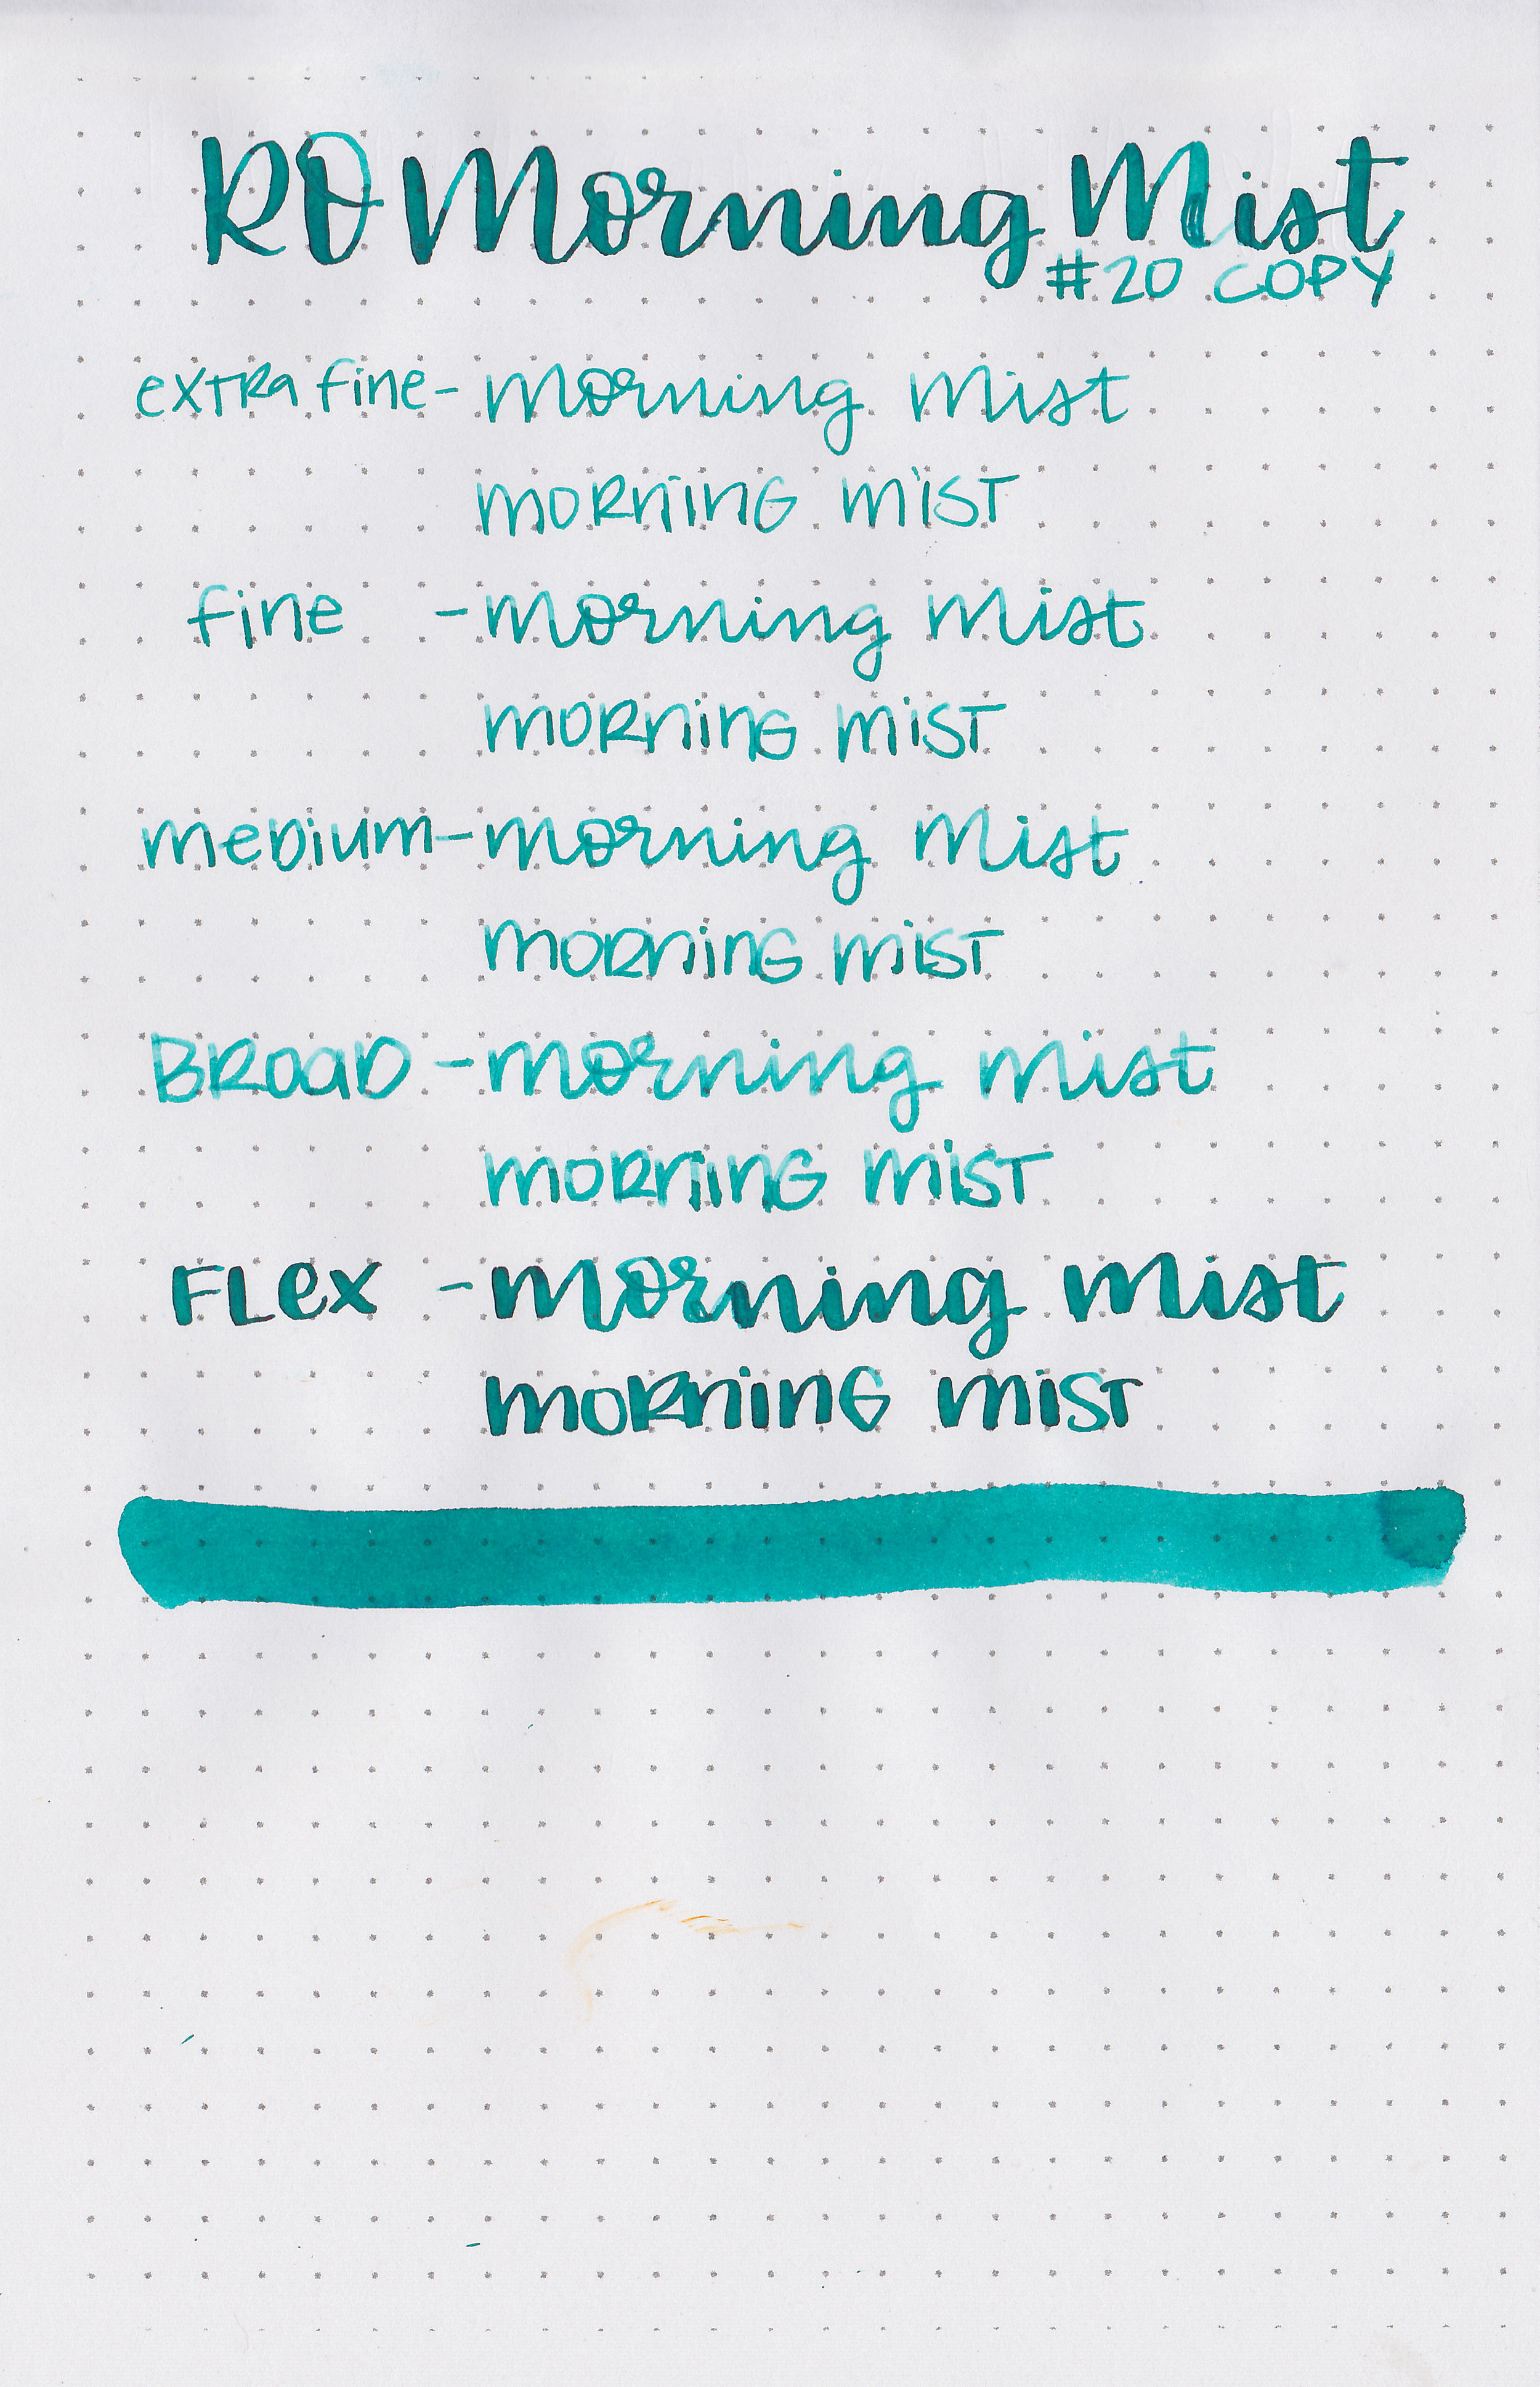 RO Morning Mist
#20 COPY
extra fine - morning mist
morning mist
fine - morning mist
morning mist
medium - morning mist
morning mist
Broad - morning mist
morning mist
Flex - morning mist
morning mist